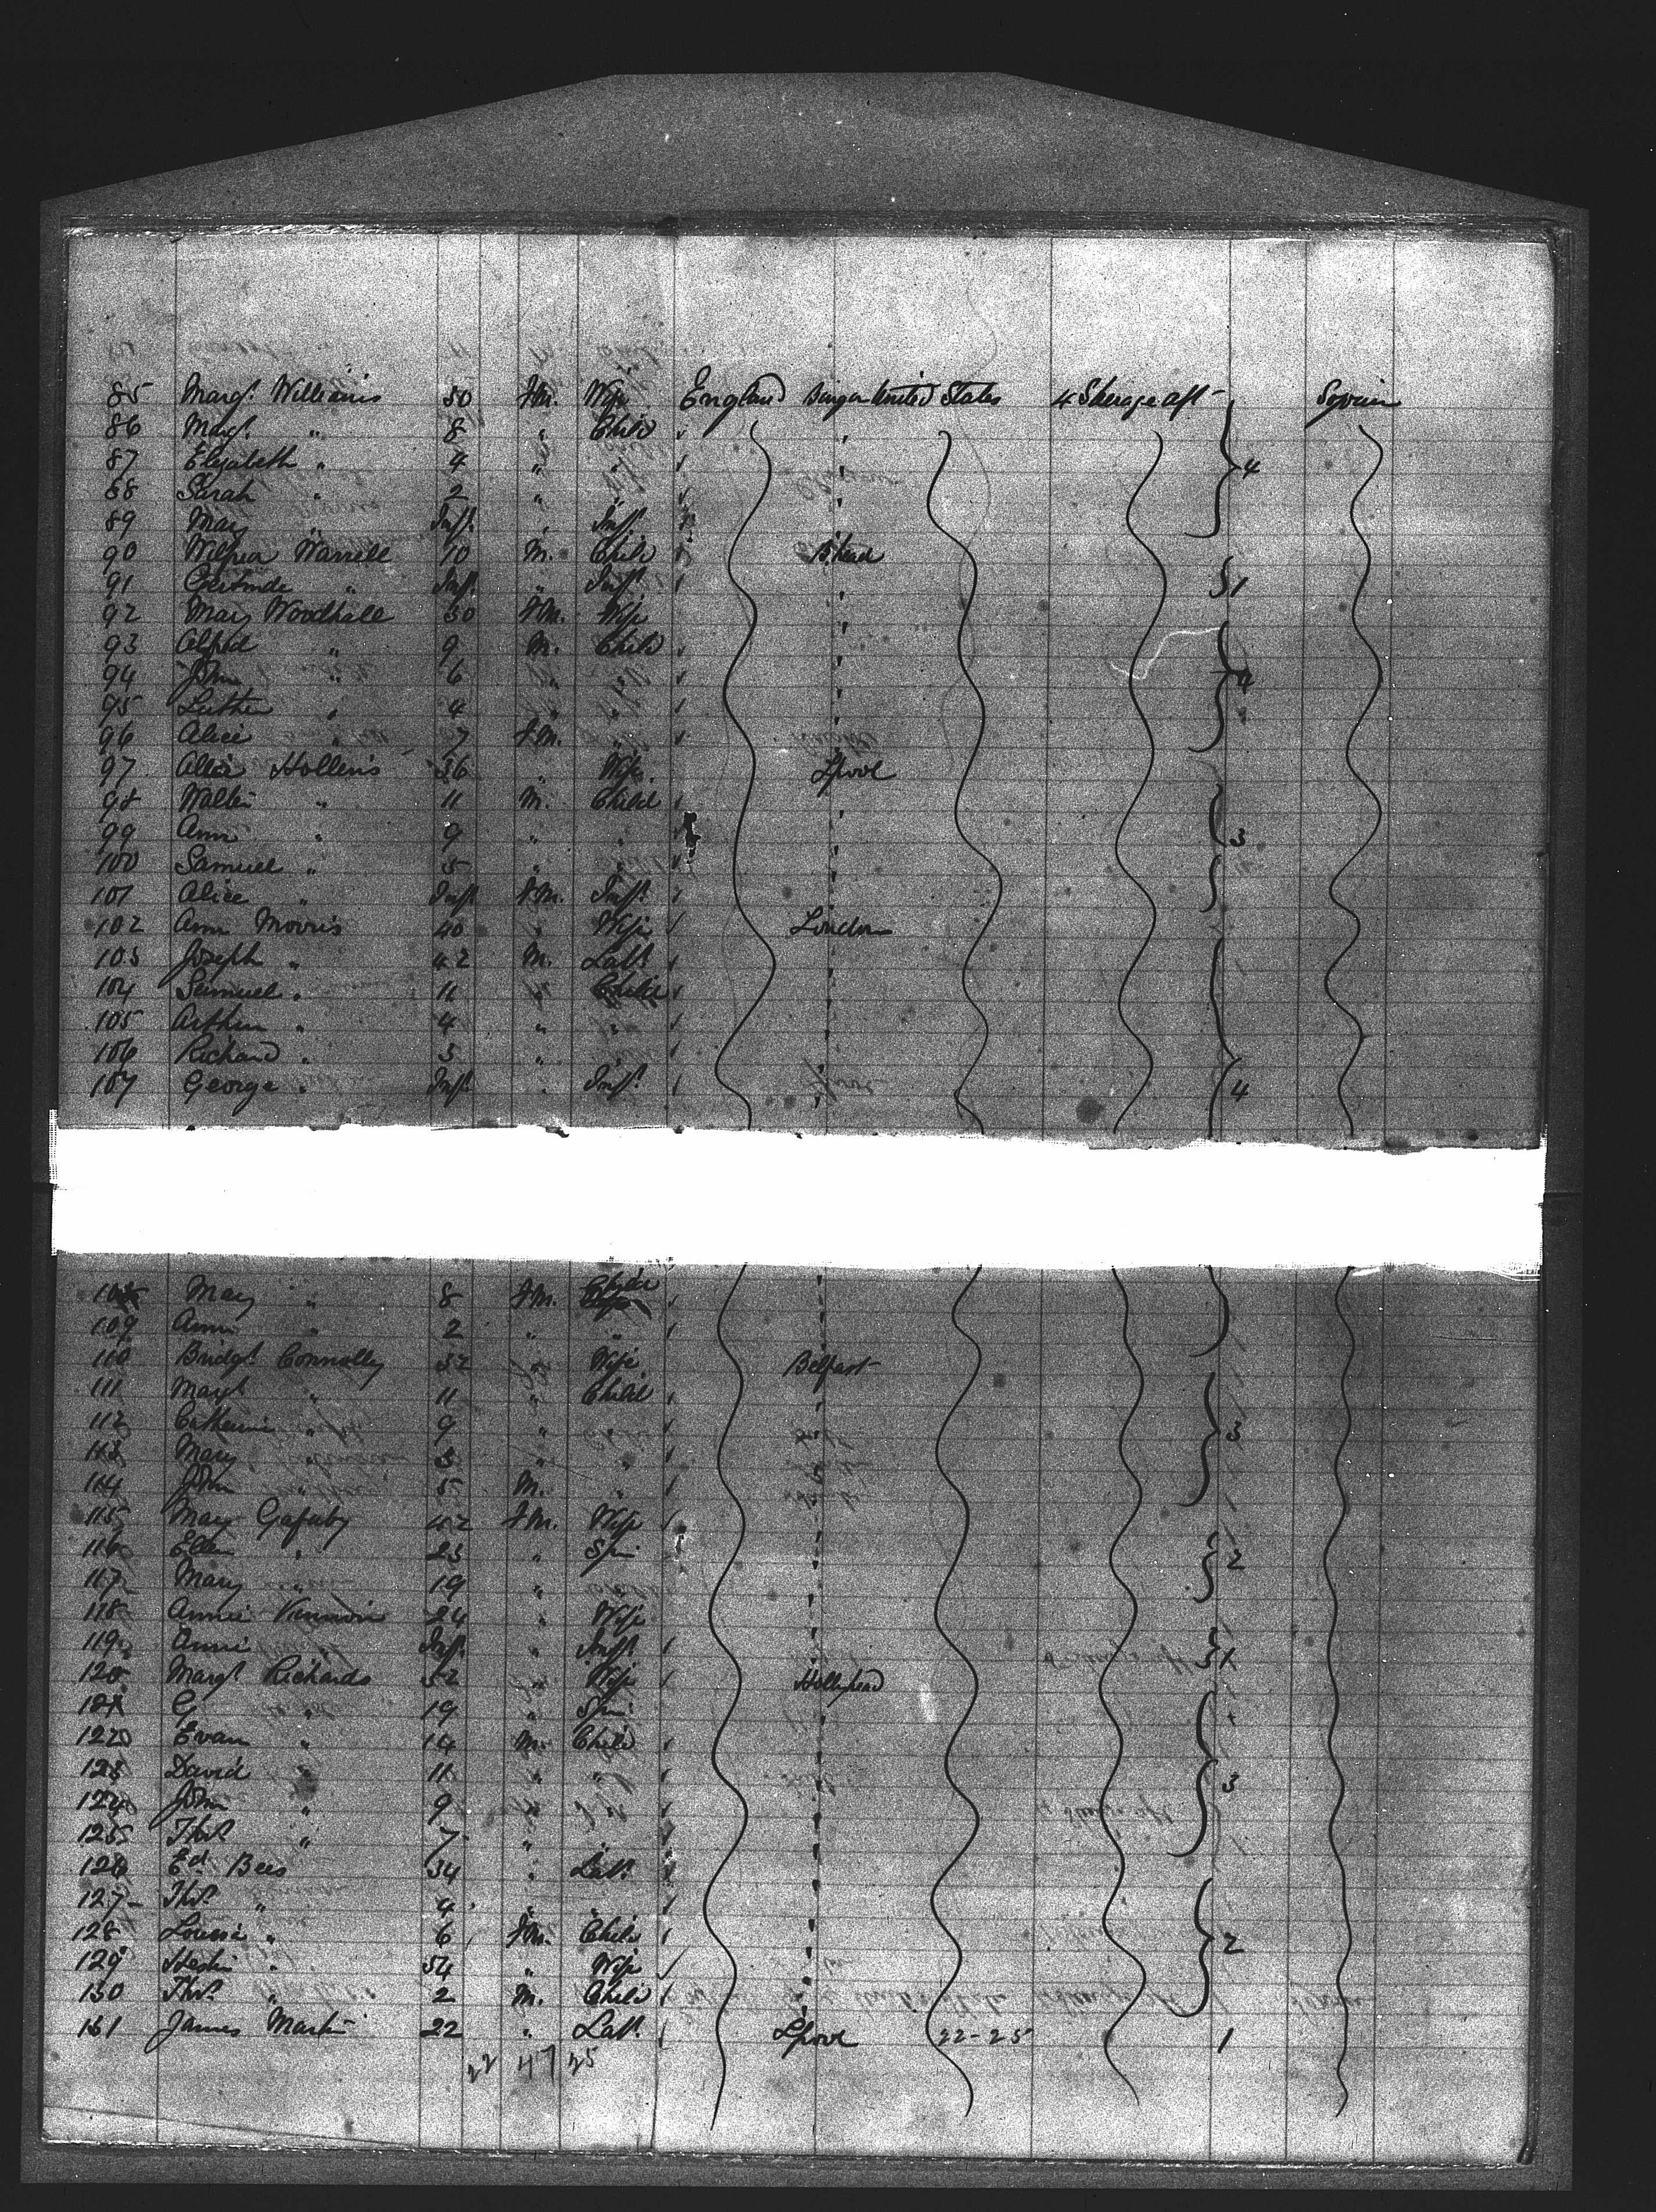 85 Margt. Williams 30 Fm. Wife England Bangor United States 4 Steerage aft Sojourn
86 Margt. " 8 " Child
87 Elizabeth " 4 " " 4
88 Sarah " 2 " "
89 Mary " Inft. " Inft.
90 Warrell 10 M. Child B'head
91 Gertrude " Inft. " Inft. 1
92 Mary Woodhall 30 Fm. Wife
93 Alfred " 9 M. Child
94 John " 6 " " 4
95 Luther " 4 " "
96 Alice " 7 Fm. "
97 Alice Hollens 36 " Wife L'pool
98 Walter " 11 M. Child
99 Ann " 9 " " 3
100 Samuel " 5 " "
101 Alice " Inft. Fm. Inft.
102 Ann Morris 40 " Wife London
103 Joseph " 42 M. Labr.
104 Samuel " 11 " Child
105 Arthur " 4 " "
106 Richard " 3 " "
107 George " Inft. " Inft. 4
108 Mary " 8 Fm. Child
109 Ann " 2 " "
110 Bridgt. Connolly 32 " Wife Belfast
111 Margt. " 11 " Child
112 Catherine " 9 " " 3
113 Mary " 3 " "
114 John " 5 M. "
115 Mary 42 Fm. Wife
116 Ellen " 23 " Spin 2
117 Mary " 19 "
118 Annie 24 " Wife
119 Annie " Inft. " Inft. 1
120 Margt. Richards 52 " Wife Hollyhead
121 G " 19 " Spin.
122 Evan " 14 M. Child
123 David " 11 " " 3
124 John " 9 " "
125 Thos. " 7 " "
126 Ed. Bees 34 " Labr.
127 Thos. " 4 " "
128 Louisa " 6 Fm. Child 2
129 " 34 " Wife
130 Thos. " 2 M. Child
131 James Martin 22 " Labr. L'pool 22-25 1
22 47 25